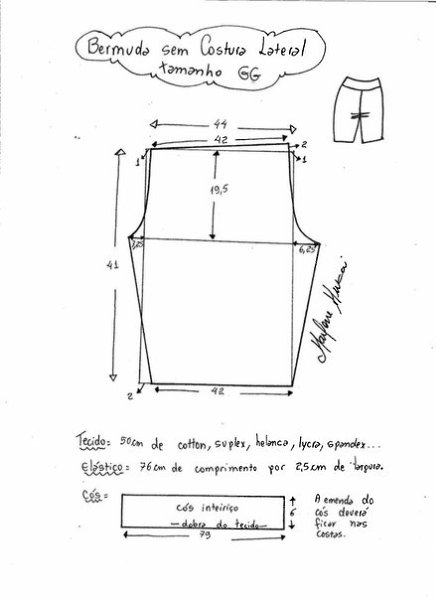 Bermuda sem Costura Lateral
tamanho GG
44
42
2
1
1
19,5
3,25
6,25
41
2
42
Marlene Mukai
Tecido: 50cm de cotton, suplex, helanca, lycra, spandex...
Elástico: 76cm de comprimento por 2,5cm de largura.
Cós:
cós inteiriço
dobra do tecido
6
79
A emenda do
cós deverá
ficar nas
costas.